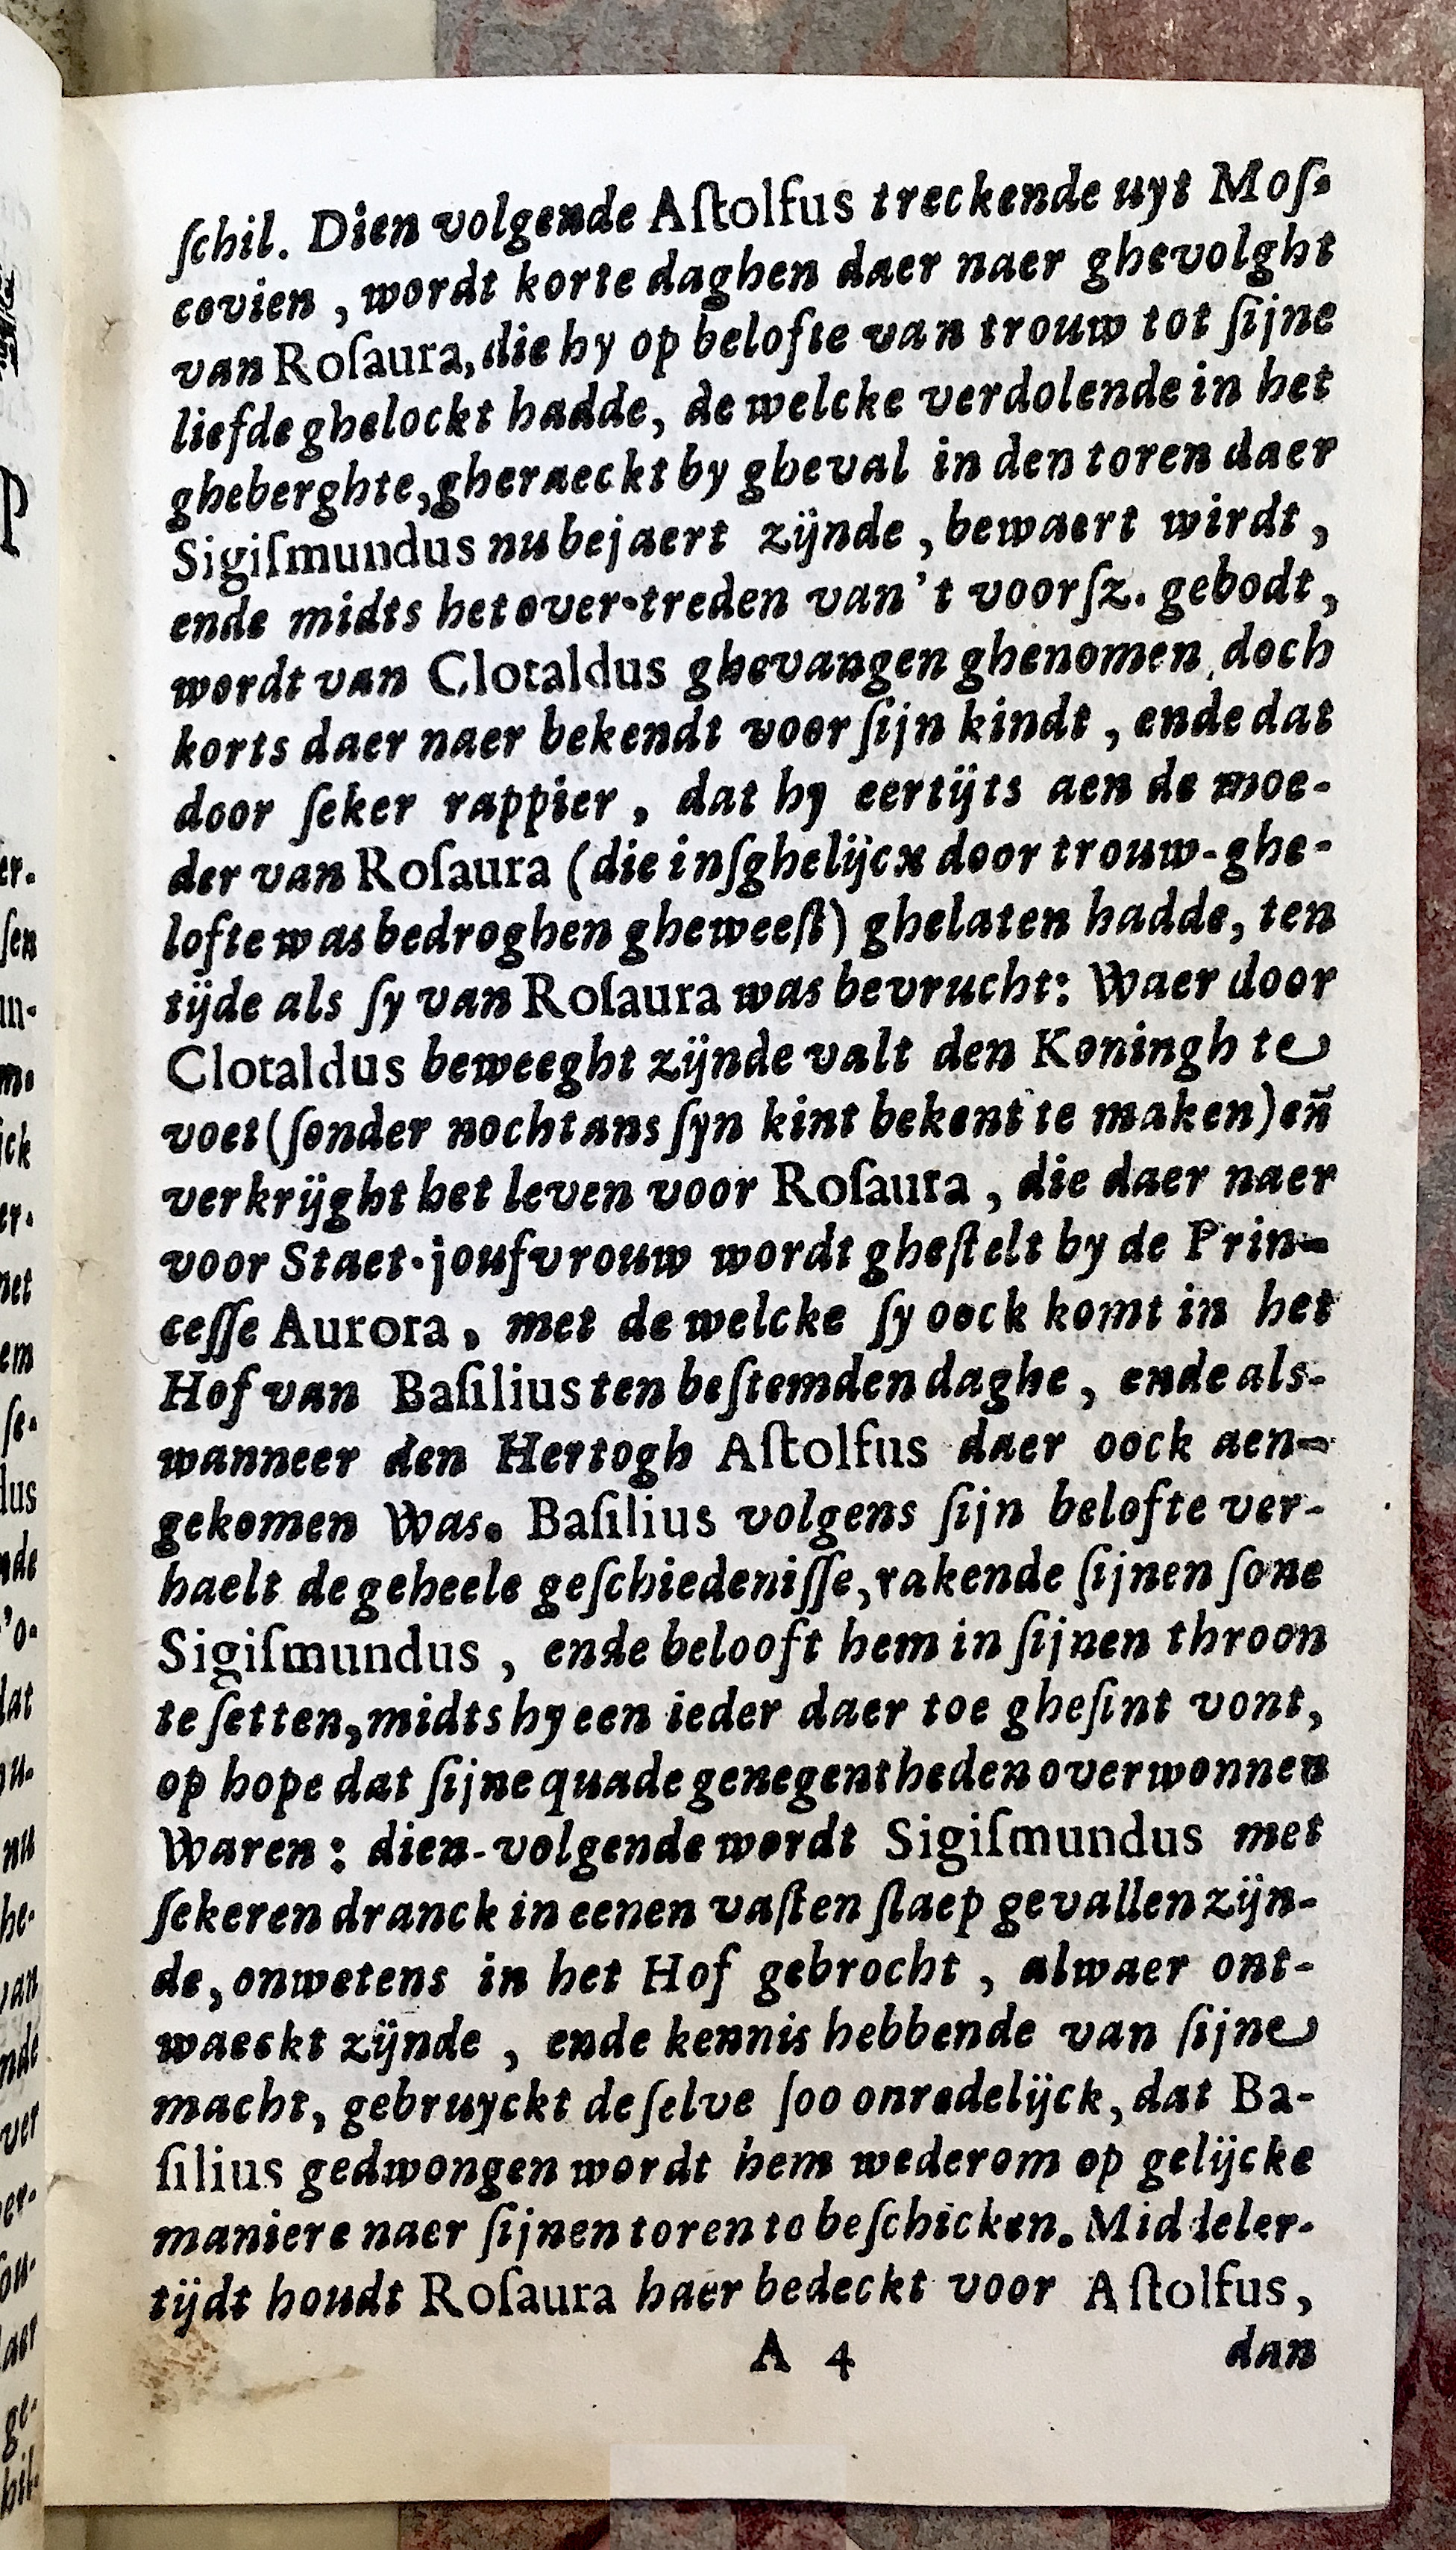 ſchil. Dien volgende Aſtolfus treckende uyt Moſ-
covien , wordt korte daghen daer naer ghevolght
van Roſaura, die hy op belofte van trouw tot ſijne
liefde ghelockt hadde, de welcke verdolende in het
gheberghte, gheraeckt by gheval in den toren daer
Sigiſmundus nu bejaert zijnde , bewaert wirdt ,
ende midts het over-treden van't voorſz. gebodt ,
wordt van Clotaldus ghevangen ghenomen, doch
korts daer naer bekendt voor ſijn kindt , ende dat
door ſeker rappier , dat hy eertijts aen de moe-
der van Roſaura (die inſghelijcx door trouw-ghe-
lofte was bedroghen gheweeſt) ghelaten hadde, ten
tijde als ſy van Roſaura was bevrucht: Waer door
Clotaldus beweeght zijnde valt den Koningh te
voet (ſonder nochtans ſyn kint bekent te maken) eñ
verkrijght het leven voor Roſaura , die daer naer
voor Staet-joufvrouw wordt gheſtelt by de Prin-
ceſſe Aurora, met de welcke ſy oock komt in het
Hof van Baſilius ten beſtemden daghe , ende als-
wanneer den Hertogh Aſtolfus daer oock aen-
gekomen Was. Baſilius volgens ſijn belofte ver-
haelt de geheele geſchiedeniſſe, rakende ſijnen ſone
Sigiſmundus , ende belooft hem in ſijnen throon
te ſetten, midts hy een ieder daer toe gheſint vont,
op hope dat ſijne quade genegentheden overwonnen
Waren : dien-volgende wordt Sigiſmundus met
ſekeren dranck in eenen vaſten ſlaep gevallen zijn-
de, onwetens in het Hof gebrocht , alwaer ont-
waeckt zijnde , ende kennis hebbende van ſijne
macht, gebruyckt de ſelve ſoo onredelijck, dat Ba-
ſilius gedwongen wordt hem wederom op gelijcke
maniere naer ſijnen toren te beſchicken. Middeler-
tijdt houdt Roſaura haer bedeckt voor Aſtolfus ,
A 4 dan